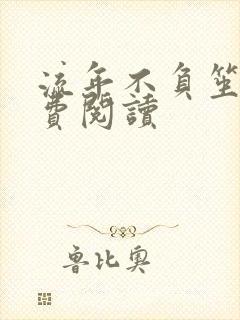 流年不負笙
費閱讀
魯比奧